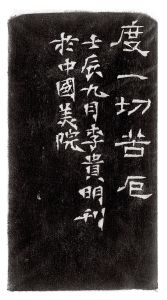 度一切苦厄
壬辰九月李貴明刊
於中國美院